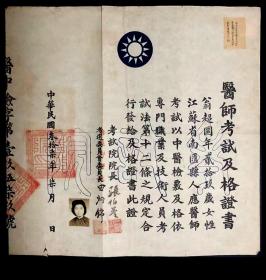 醫師考試及格證書
翁超園年貳拾玖歲女性
江蘇省南匯縣人應醫師
考試以中醫檢覈及格依
專門職業及技術人員考
試法第十二條之規定合
行發給及格證書此證
考試院院長張伯苓
考選委員會委員長田炯錦
中華民國叁拾柒年柒月 日